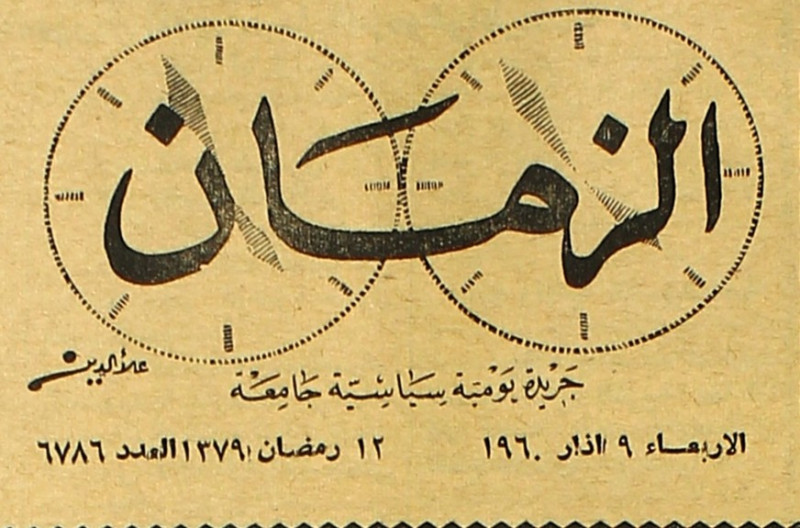 الزمان
علاءالدين
جريدة يومية سياسية جامعة
الاربعاء ٩ اذار ١٩٦٠
١٢ رمضان ١٣٧٩ العدد ٦٧٨٦